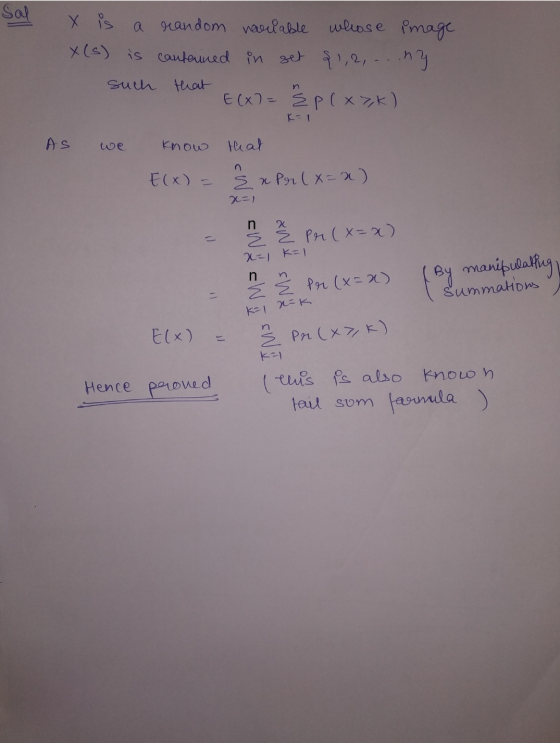 Sol X is a random variable whose image
X(s) is contained in set {1,2, ... n}
such that
E(X) = \sum_{k=1}^{n} P(X≥k)
As we know that
E(x) = \sum_{x=1}^{n} x Pr(X=x)
= \sum_{x=1}^{n} \sum_{k=1}^{x} Pr(X=x)
= \sum_{k=1}^{n} \sum_{x=k}^{n} Pr(X=x) (By manipulating summations)
E(x) = \sum_{k=1}^{n} Pr(X≥k)
Hence proved (this is also known
tail sum formula)